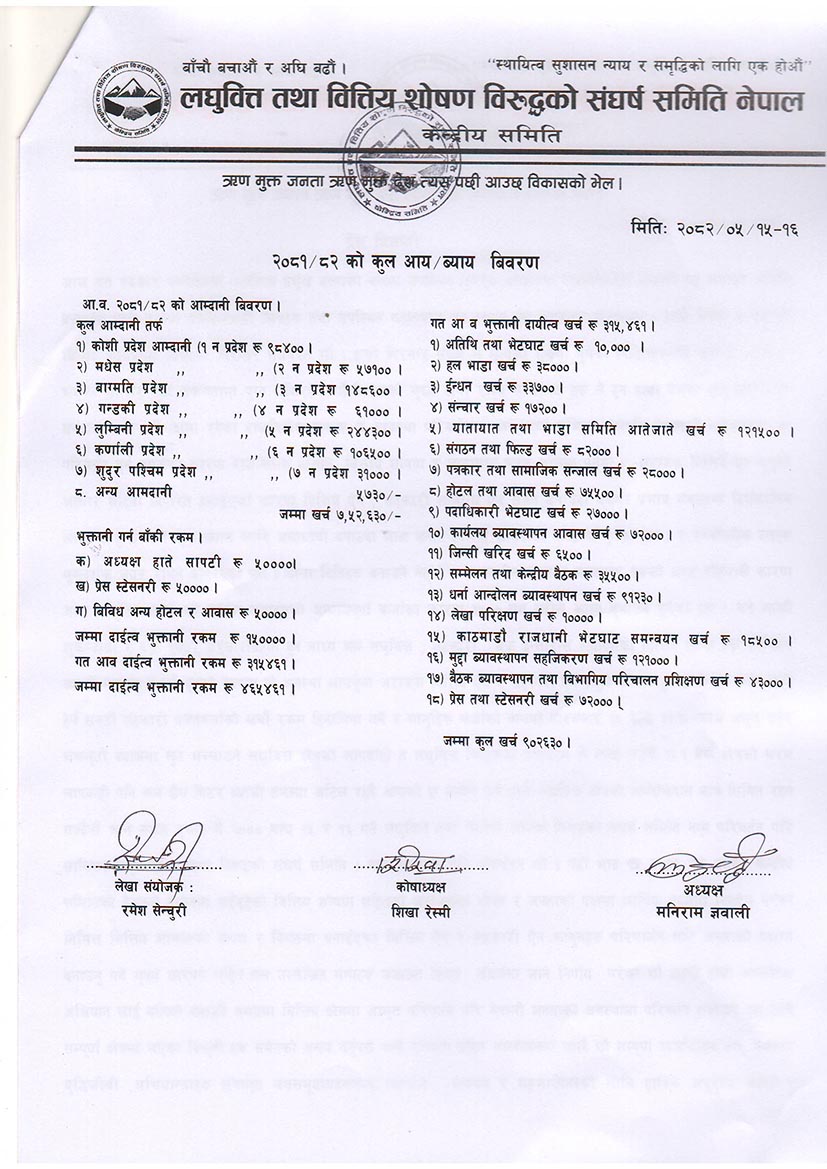 बाँचौ बचाऔं र अघि बढौं ।
"स्थायित्व सुशासन न्याय र समृद्धिको लागि एक होऔं"
लघुवित्त तथा वित्तिय शोषण विरुद्धको संघर्ष समिति नेपाल
केन्द्रीय समिति
ऋण मुक्त जनता ऋण मुक्त देश त्यस पछी आउछ विकासको भेल ।
मितिः २०८२/०५/१५-१६
२०८१/८२ को कुल आय/ब्याय बिवरण
आ.व. २०८१/८२ को आम्दानी बिवरण ।
कुल आम्दानी तर्फ
१) कोशी प्रदेश आम्दानी (१ न प्रदेश रू ९८४०० ।
२) मधेस प्रदेश ,, ,, (२ न प्रदेश रू ५७१०० ।
३) वारमति प्रदेश ,, ,, (३ न प्रदेश १४८६०० ।
४) गन्डकी प्रदेश ,, ,, (४ न प्रदेश रू ६१००० ।
५) लुम्विनी प्रदेश ,, ,, (५ न प्रदेश रू २४४३०० ।
६) कर्णाली प्रदेश ,, ,, (६ न प्रदेश रू १०६५०० ।
७) शुदुर पश्चिम प्रदेश ,, ,, (७ न प्रदेश ३१००० ।
८. अन्य आमदानी ५७३०/-
जम्मा खर्च ७,५२,६३०/-
भुक्तानी गर्न बाँकी रकम ।
क) अध्यक्ष हाते सापटी रू ५००००।
ख) प्रेस स्टेसनरी रू ५०००० ।
ग) विविध अन्य होटल र आवास रू ५०००० ।
जम्मा दाईत्व भुक्तानी रकम रू १५०००० ।
गत आव दाईत्व भुक्तानी रकम रू ३१५४६१ ।
जम्मा दाईत्व भुक्तानी रकम रू ४६५४६१ ।
गत आ व भुक्तानी दायीत्व खर्च रू ३१५,४६१ ।
१) अतिथि तथा भेटघाट खर्च रू १०,००० ।
२) हल भाडा खर्च रू ३८००० ।
३) ईन्धन खर्च रू ३३७०० ।
४) संन्चार खर्च रू १७२०० ।
५) यातायात तथा भाडा समिति आतेजाते खर्च रू १२१५०० ।
६) संगठन तथा फिल्ड खर्च रू ८२००० ।
७) पत्रकार तथा सामाजिक संजाल खर्च रू २८००० ।
८) होटल तथा आवास खर्च रू ७५५०० ।
९) पदाधिकारी भेटघाट खर्च रू २७००० ।
१०) कार्यलय ब्यावस्थापन आवास खर्च रू ७२००० ।
११) जिन्सी खरिद खर्च रू ६५०० ।
१२) सम्मेलन तथा केन्द्रीय बैठक रू ३५५०० ।
१३) धर्ना आन्दोलन ब्यावस्थापन खर्च रू ९१२३० ।
१४) लेखा परिक्षण खर्च रू १०००० ।
१५) काठमाडौं राजधानी भेटघाट समन्वयन खर्च रू १८५०० ।
१६) मुद्दा ब्यावस्थापन सहजिकरण खर्च रू १२१००० ।
१७) बैठक ब्यावस्थापन तथा बिभागिय परिचालन प्रशिक्षण खर्च रू ४३००० ।
१८) प्रेस तथा स्टेसनरी खर्च रू ७२००० ।
जम्मा कुल खर्च ९०२६३० ।
लेखा संयोजक :
रमेश सेन्चुरी
कोषाध्यक्ष
शिखा रेस्मी
अध्यक्ष
मनिराम ज्ञवाली